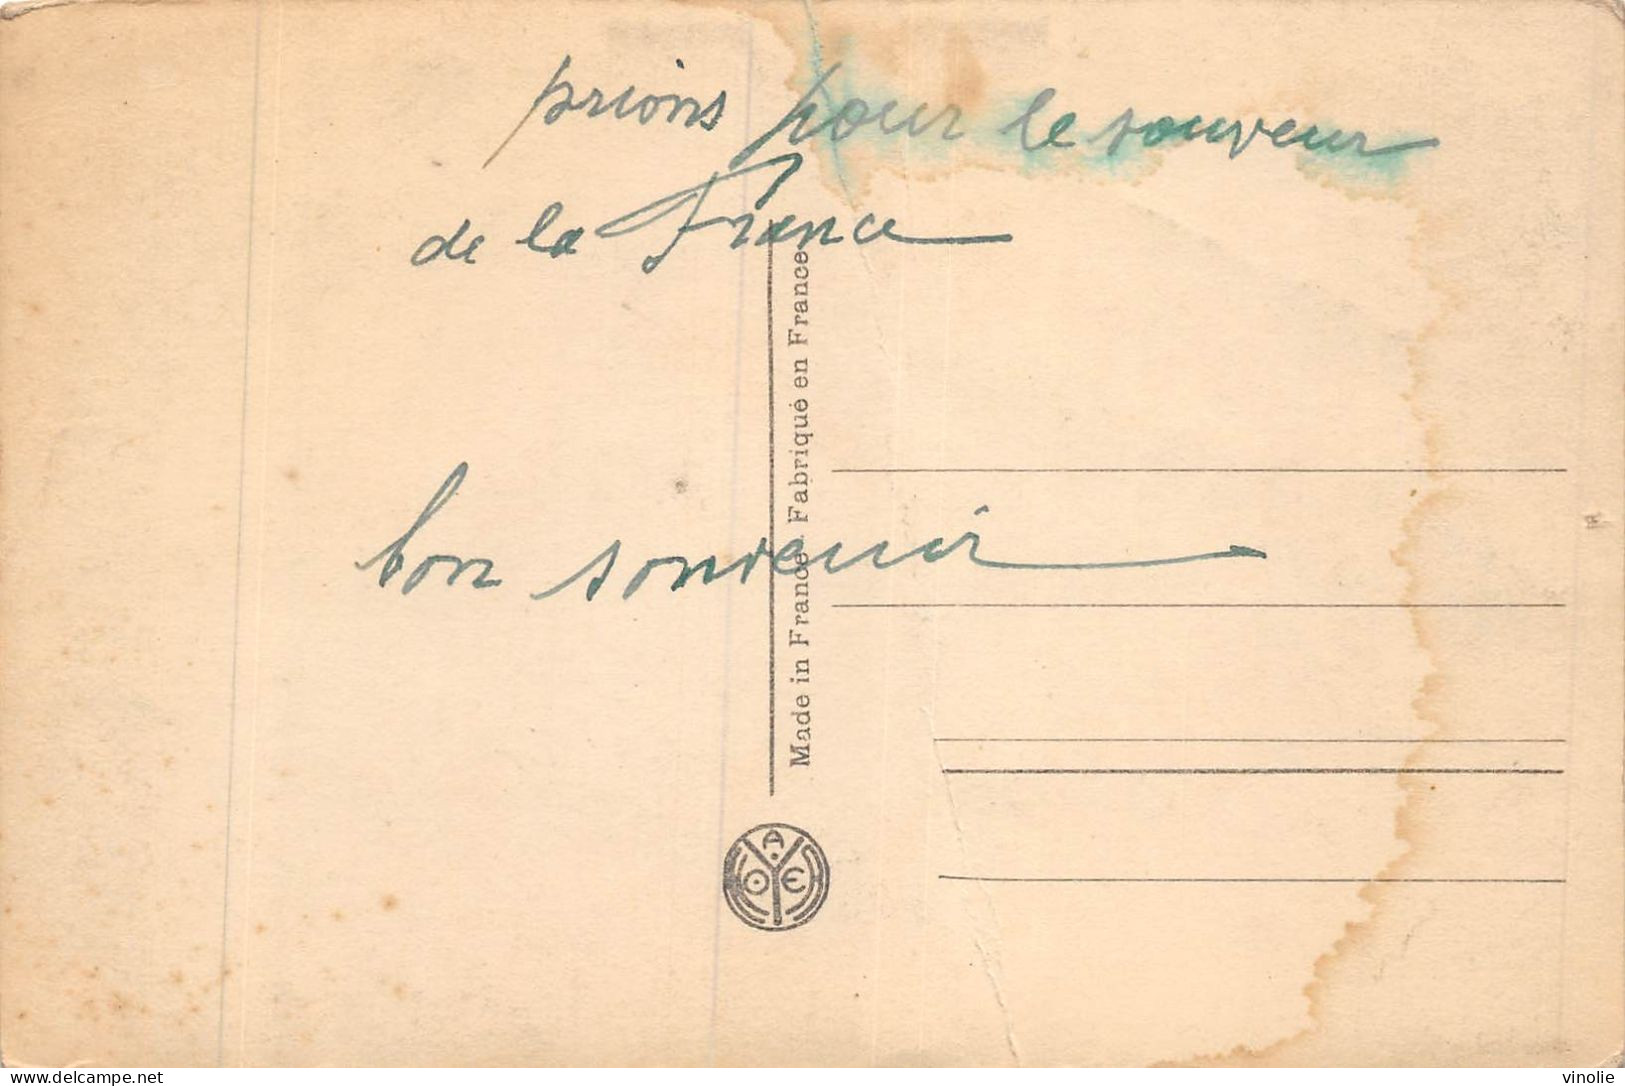 prions pour le souveur
de la France
bon souvenir
Made in France - Fabriqué en France
A
O E
vinolie